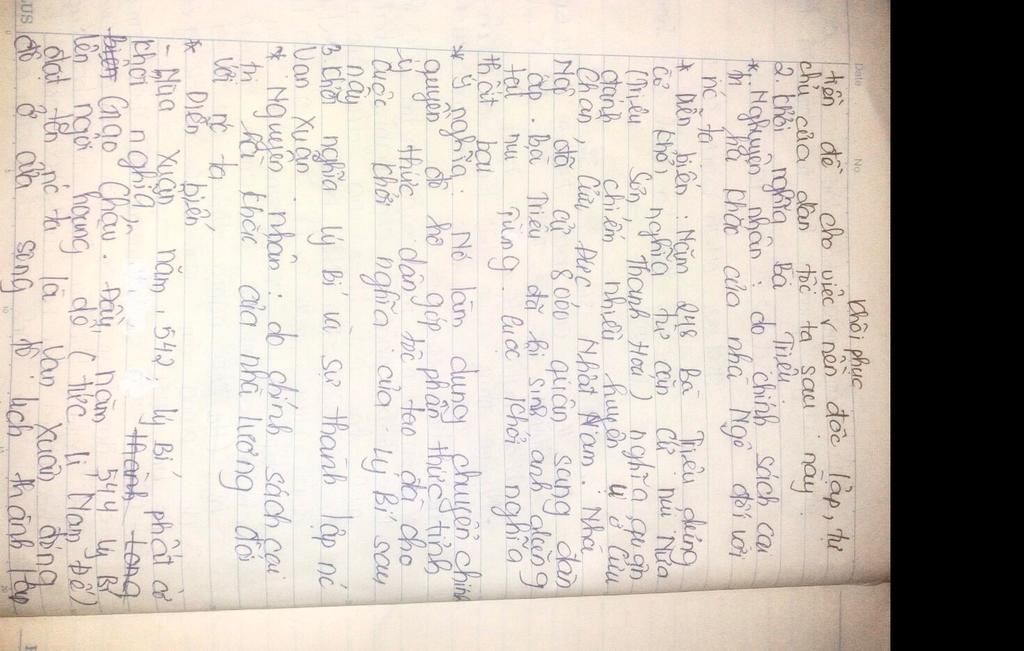 Khôi phục
tiền đề cho việc v nền độc lập, tự
chủ của dân tộc ta sau này.
2. Khởi nghĩa Bà Triệu.
* Nguyên nhân: do chính sách cai
trị hà khắc của nhà Ngô đối với
nc ta
* Diễn biến: Năm 248 Bà Triệu dựng
cờ khởi nghĩa từ căn cứ núi Nưa
(Triệu Sơn, Thanh Hoá) nghĩa quân
đánh chiếm nhiều huyện ở Cửu
Chân, Cửu Đức Nhật Nam. Nhà
Ngô đã cử 8000 quân sang đàn
áp. Bà Triệu đã hi sinh anh dũng
tại núi Tùng. Cuộc khởi nghĩa
thất bại
* Ý nghĩa: Nó làm dung chuyển chính
quyền đô hộ góp phần thức tỉnh
ý thức dân tộc tạo đà cho
cuộc khởi nghĩa của Lý Bí sau
này
3. Khởi nghĩa Lý Bí và sự thành lập nc
Vạn Xuân
* Nguyên nhân: do chính sách cai
trị hà khắc của nhà Lương đối
với nc ta
* Diễn biến
- Mùa xuân năm 542 Lý Bí phất cờ
khởi nghĩa, thành tong
Giao Châu. Đầu năm 544 Lý Bí
lên ngôi hoàng đế (tức Lí Nam Đế)
đặt tên nc ta là Vạn Xuân đóng
đô ở cửa sông Tô Lịch thành lập